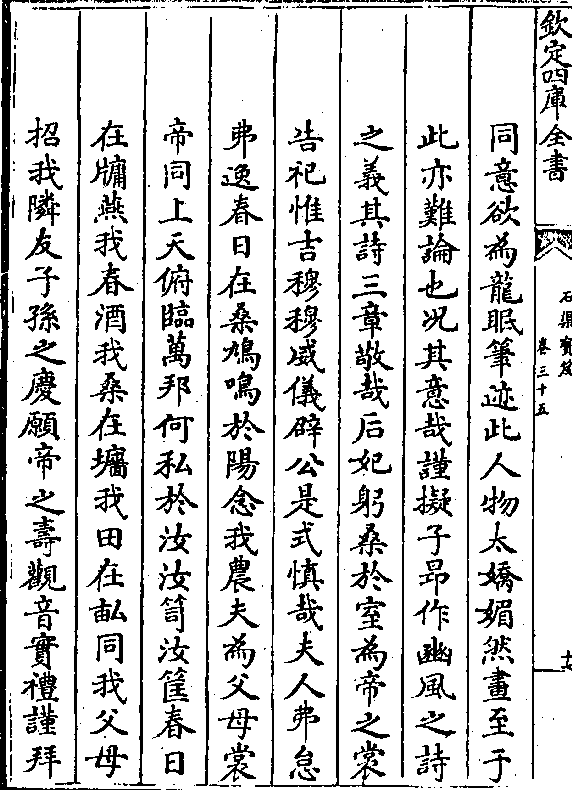 欽定四庫全書
石渠寶笈
卷三十五
同意欲為龍眠筆迹此人物太嬌媚然畫至于
此亦難論也况其意哉謹擬子昂作豳風之詩
之義其詩三章敬哉后妃躬桑於室為帝之裳
告祀惟吉穆穆威儀辟公是式慎哉夫人弗怠
弗逸春日在桑鳩鳴於陽念我農夫為父母裳
帝同上天俯臨萬邦何私於汝汝笥汝筐春日
在牗燕我春酒我桑在墻我田在畝同我父母
招我隣友子孫之慶願帝之壽觀音實禮謹拜